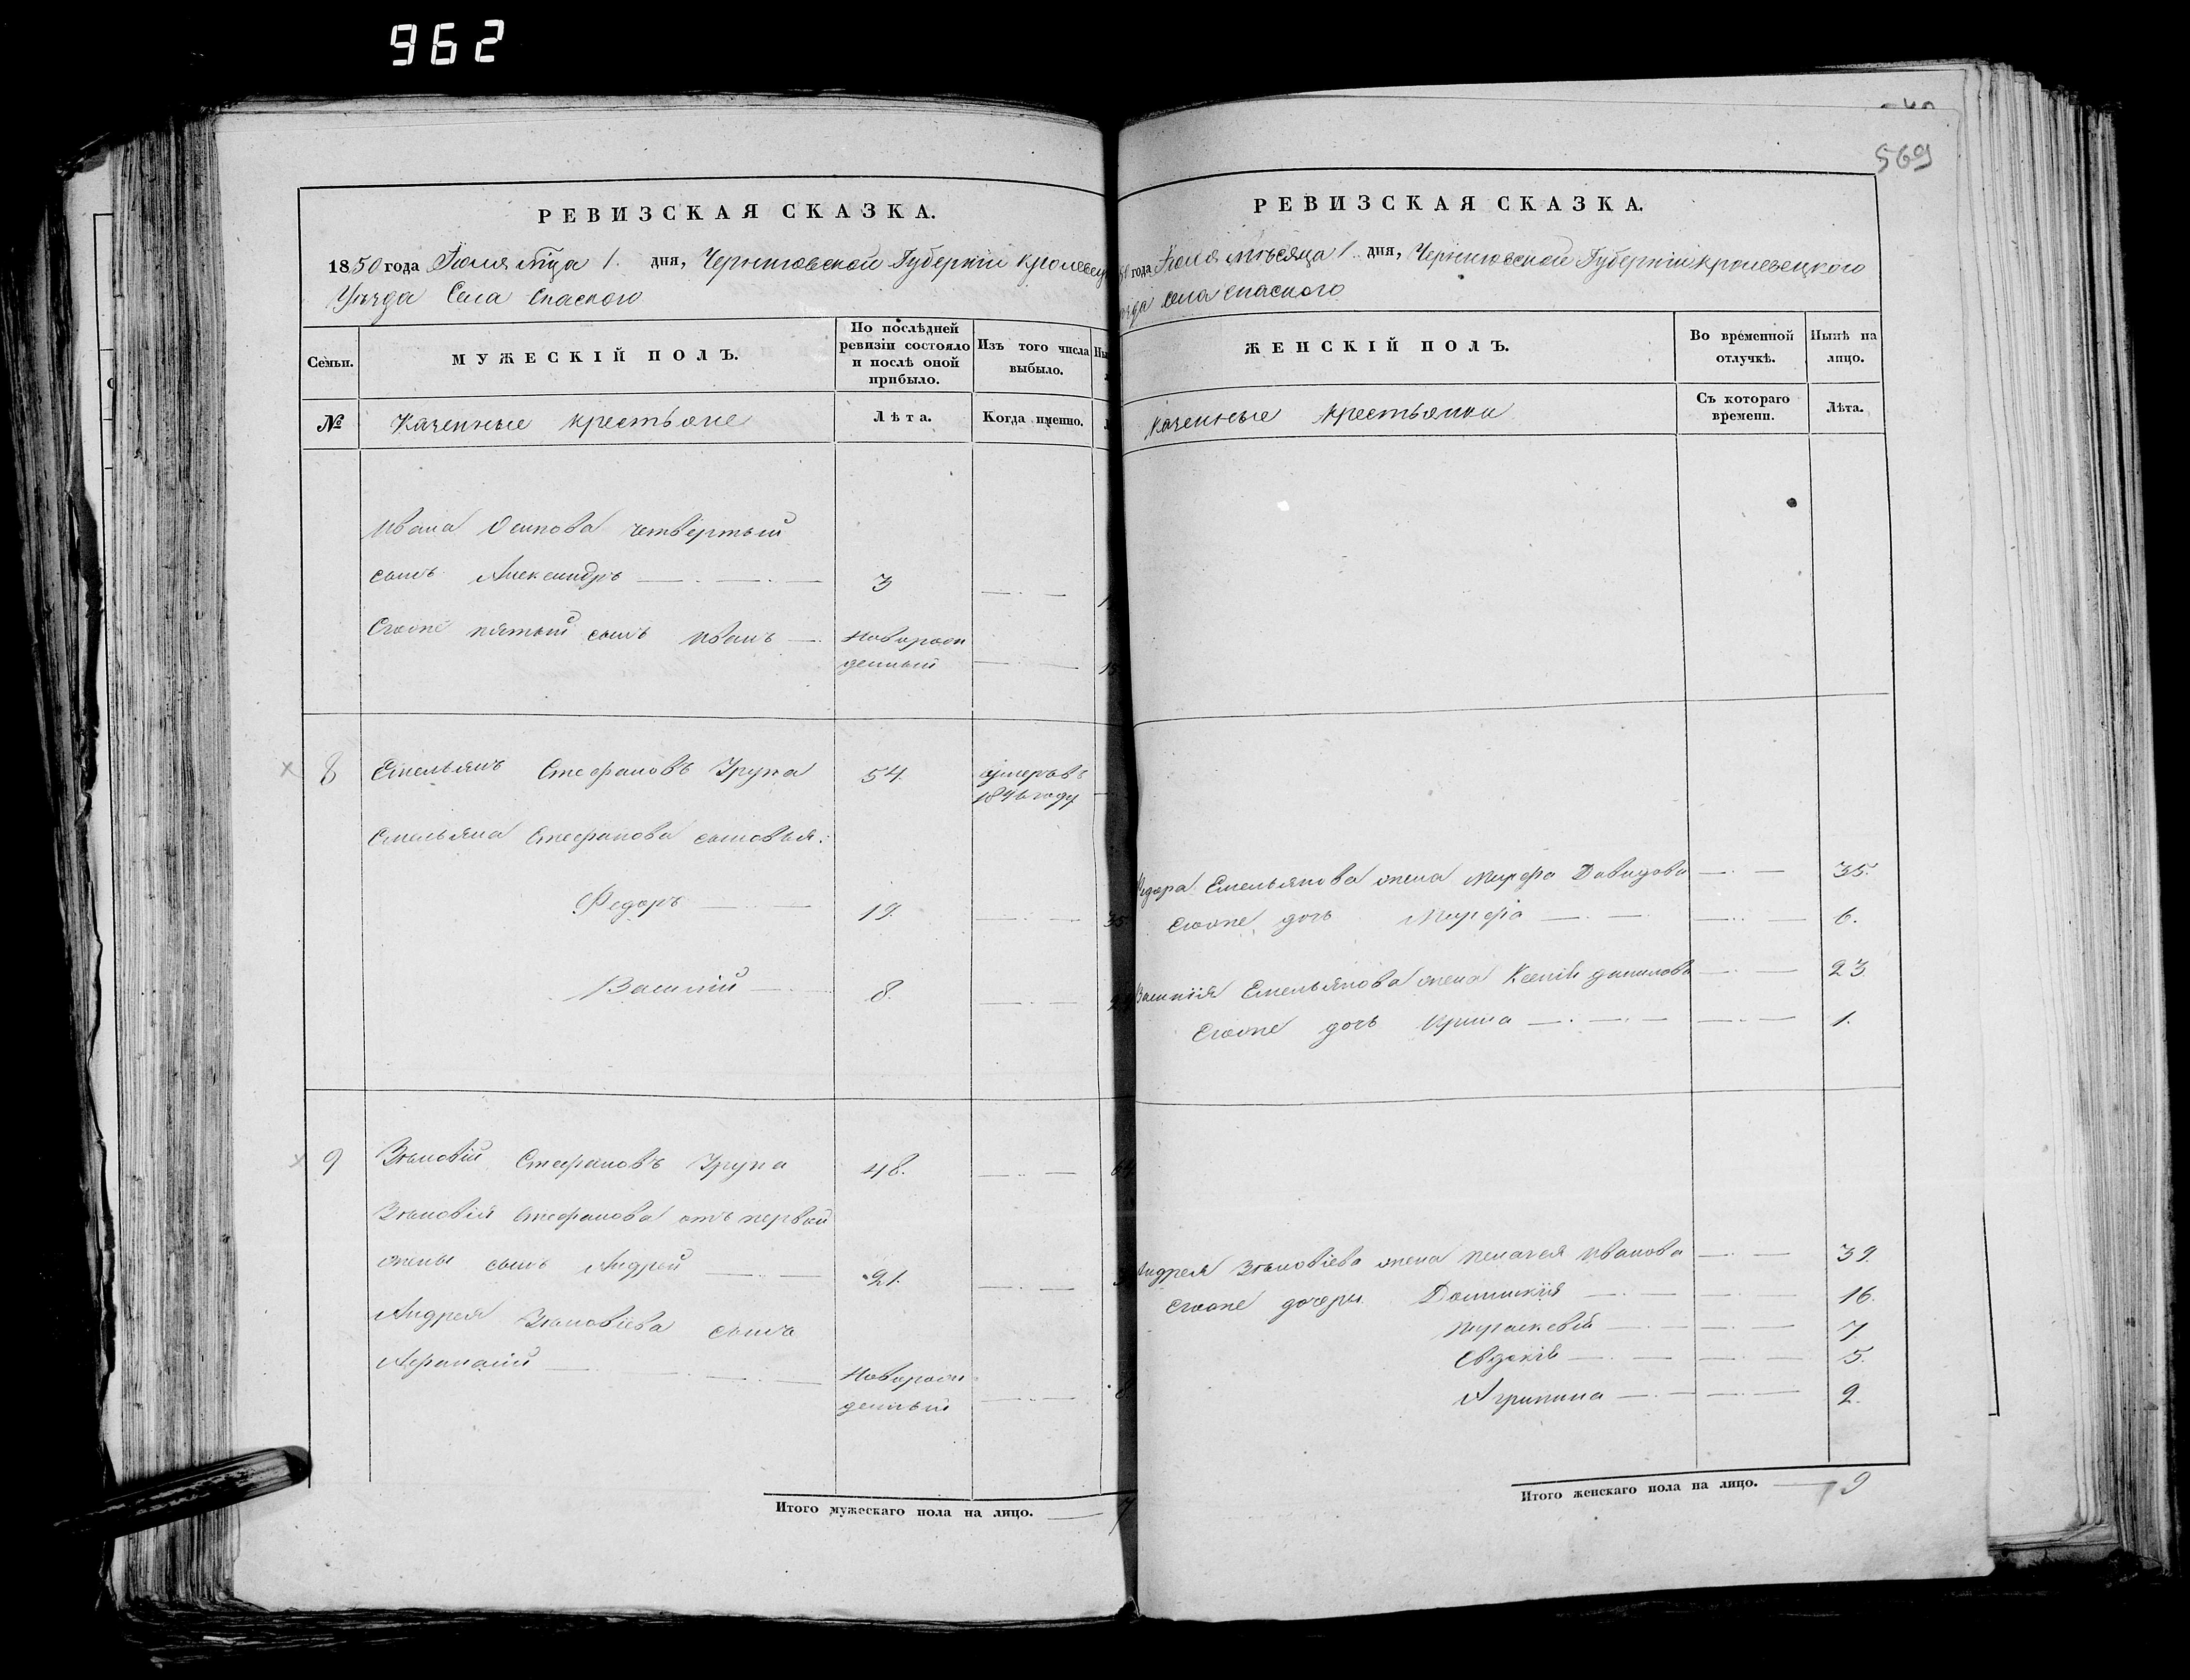 962
569
РЕВИЗСКАЯ СКАЗКА.
1850 года Іюля мѣца 1. дня, Черниговской Губерніи Кролевец
Уѣзда Села Спаского
Семьи.
МУЖЕСКІЙ ПОЛЪ.
По послѣдней ревизіи состояло и послѣ оной прибыло.
Изъ того числа выбыло.
№
Казенные крестьяне
Лѣта.
Когда именно.
Ивана Осипова четвертый
сынъ Александръ — 3
Егоже пятый сынъ Иванъ — Новорож
денный
8 Емельянъ Стефановъ Трупа 54. умеръ въ
1846 году
Емельяна Стефанова сыновья:
Федоръ — 19. — 35.
Василій — 8. —
9 Зѣновій Стефановъ Трупа 48. — 64
Зѣновія Стефанова отъ первой
жены сынъ Андрей — 21. —
Андрея Зѣновіева сынъ
Афанасій — Новорож
денный
Итого мужескаго пола на лицо. — 7
РЕВИЗСКАЯ СКАЗКА.
50 года Іюля мѣсяца 1. дня, Черниговской Губерніи Кролевецкого
ѣзда Села Спаского
ЖЕНСКІЙ ПОЛЪ.
Во временной отлучкѣ.
Нынѣ на лицо.
Казенные крестьянки
Съ котораго времени.
Лѣта.
Федора Емельянова жена Марфа Давидова — 35.
Егоже дочь Марфа — 6.
Василія Емельянова жена Ксенія Данилова — 23
Егоже дочь Ирина — 1.
Андрея Зѣновіева жена Пелагея Иванова — 39.
Егоже дочери Домникія — 16.
Параскевія — 7.
Евдокія — 5.
Агрипина — 2.
Итого женскаго пола на лицо. — 9